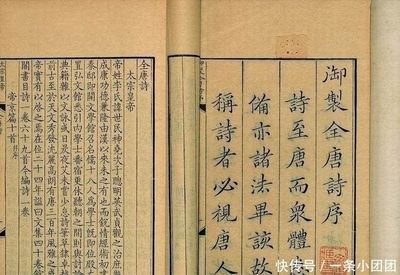 御製全唐詩序
詩至唐而衆體
備亦諸法畢該故
稱詩者必視唐人
全唐詩
太宗皇帝
帝姓李氏諱世民神堯次子聰明英武貞觀之治庶
成康功德兼隆由漢以來未之有也而銳情經術初
秦邸即開文學館召名儒十八人爲學士既即位殿
置弘文館悉引內學士番宿更休聽朝之間則與討
典籍雜以文詠或日昃夜艾未嘗少怠詩筆草隸卓
前古至於天文秀發沈麗高朗有唐三百年風雅之
帝實有以啓之焉在位二十四年諡曰文集四十卷
閣書目詩一卷六十九首今編詩一卷
帝京篇十首
快传号 / 一条小团团